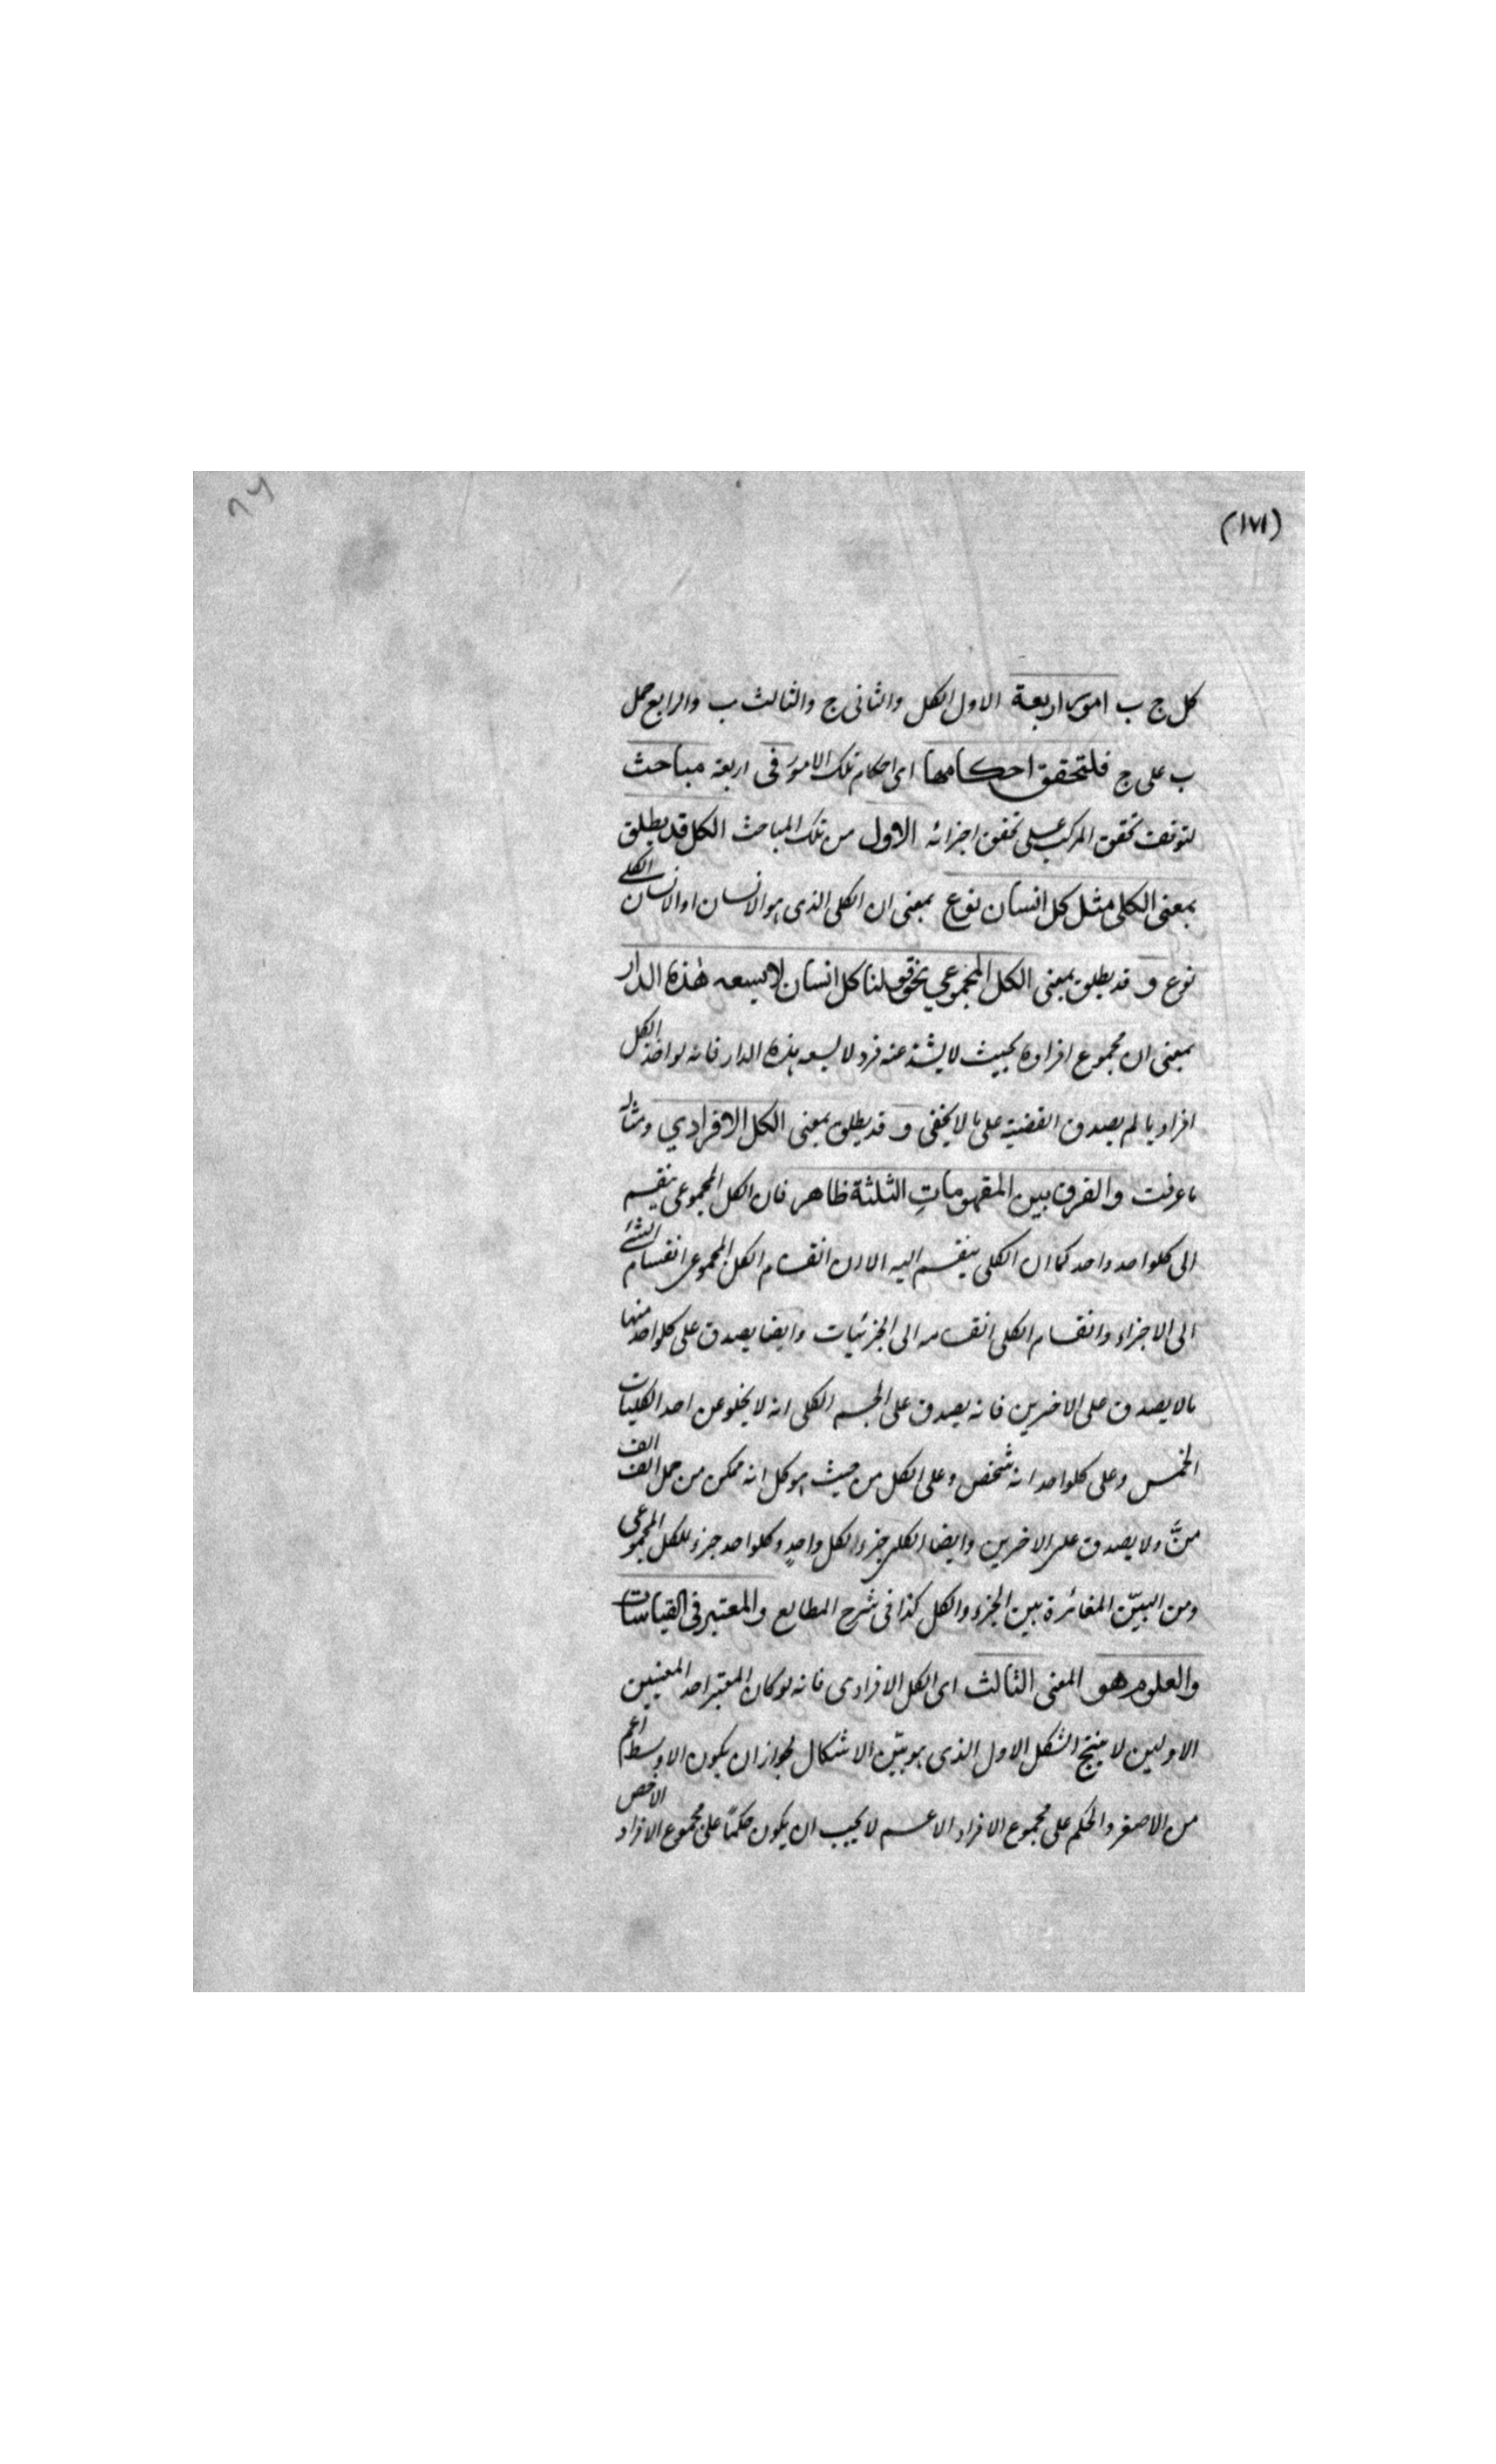 (١٧١)
٨٦
كل ج ب امور اربعة الاول الكل والثانى ج والثالث ب والرابع حمل
ب على ج فلتحقق احكامها اى احكام تلك الامور فى اربعة مباحث
لتوقف تحقق المركب على تحقق اجزائه الاول من تلك المباحث الكل قد يطلق
بمعنى الكلى مثل كل انسان نوع بمعنى ان الكلى الذى هو الانسان او الانسان الكلى
نوع و قد يطلق بمعنى الكل المجموعي نحو قولنا كل انسان لا يسعه هذه الدار
بمعنى ان مجموع افراده بحيث لا يشذ عنه فرد لا يسعه هذه الدار فانه لو اخذ الكل
افراديا لم يصدق القضية على ما لا يخفى و قد يطلق بمعنى الكل الافرادي ومثاله
ما عرفت والفرق بين المفهومات الثلثة ظاهر فان الكل المجموعى ينقسم
الى كلواحد واحد كما ان الكلى ينقسم اليه الا ان انقسام الكل المجموعى انقسام الشئ
الى الاجزاء وانقسام الكلى انقسامه الى الجزئيات وايضا يصدق على كلواحد منها
ما لا يصدق على الاخرين فانه يصدق على الجسم الكلى انه لا يخلو عن احد الكليات
الخمس وعلى كلواحد انه شخص وعلى الكل من حيث هو كل انه ممكن من حمل الف الف
منٍّ ولا يصدق على الاخرين وايضا الكلى جزء الكل واحدٍ وكلواحد جزء للكل المجموعى
ومن البيّن المغائرة بين الجزء والكل كذا فى شرح المطالع والمعتبر فى القياسات
والعلوم هو المعنى الثالث اى الكل الافرادى فانه لو كان المعتبر احد المعنيين
الاولين لا ينتج الشكل الاول الذى هو بيّن الاشكال لجواز ان يكون الاوسط اعم
من الاصغر والحكم على مجموع الافراد الاعم لا يجب ان يكون حكمًا على مجموع الافراد الاخص